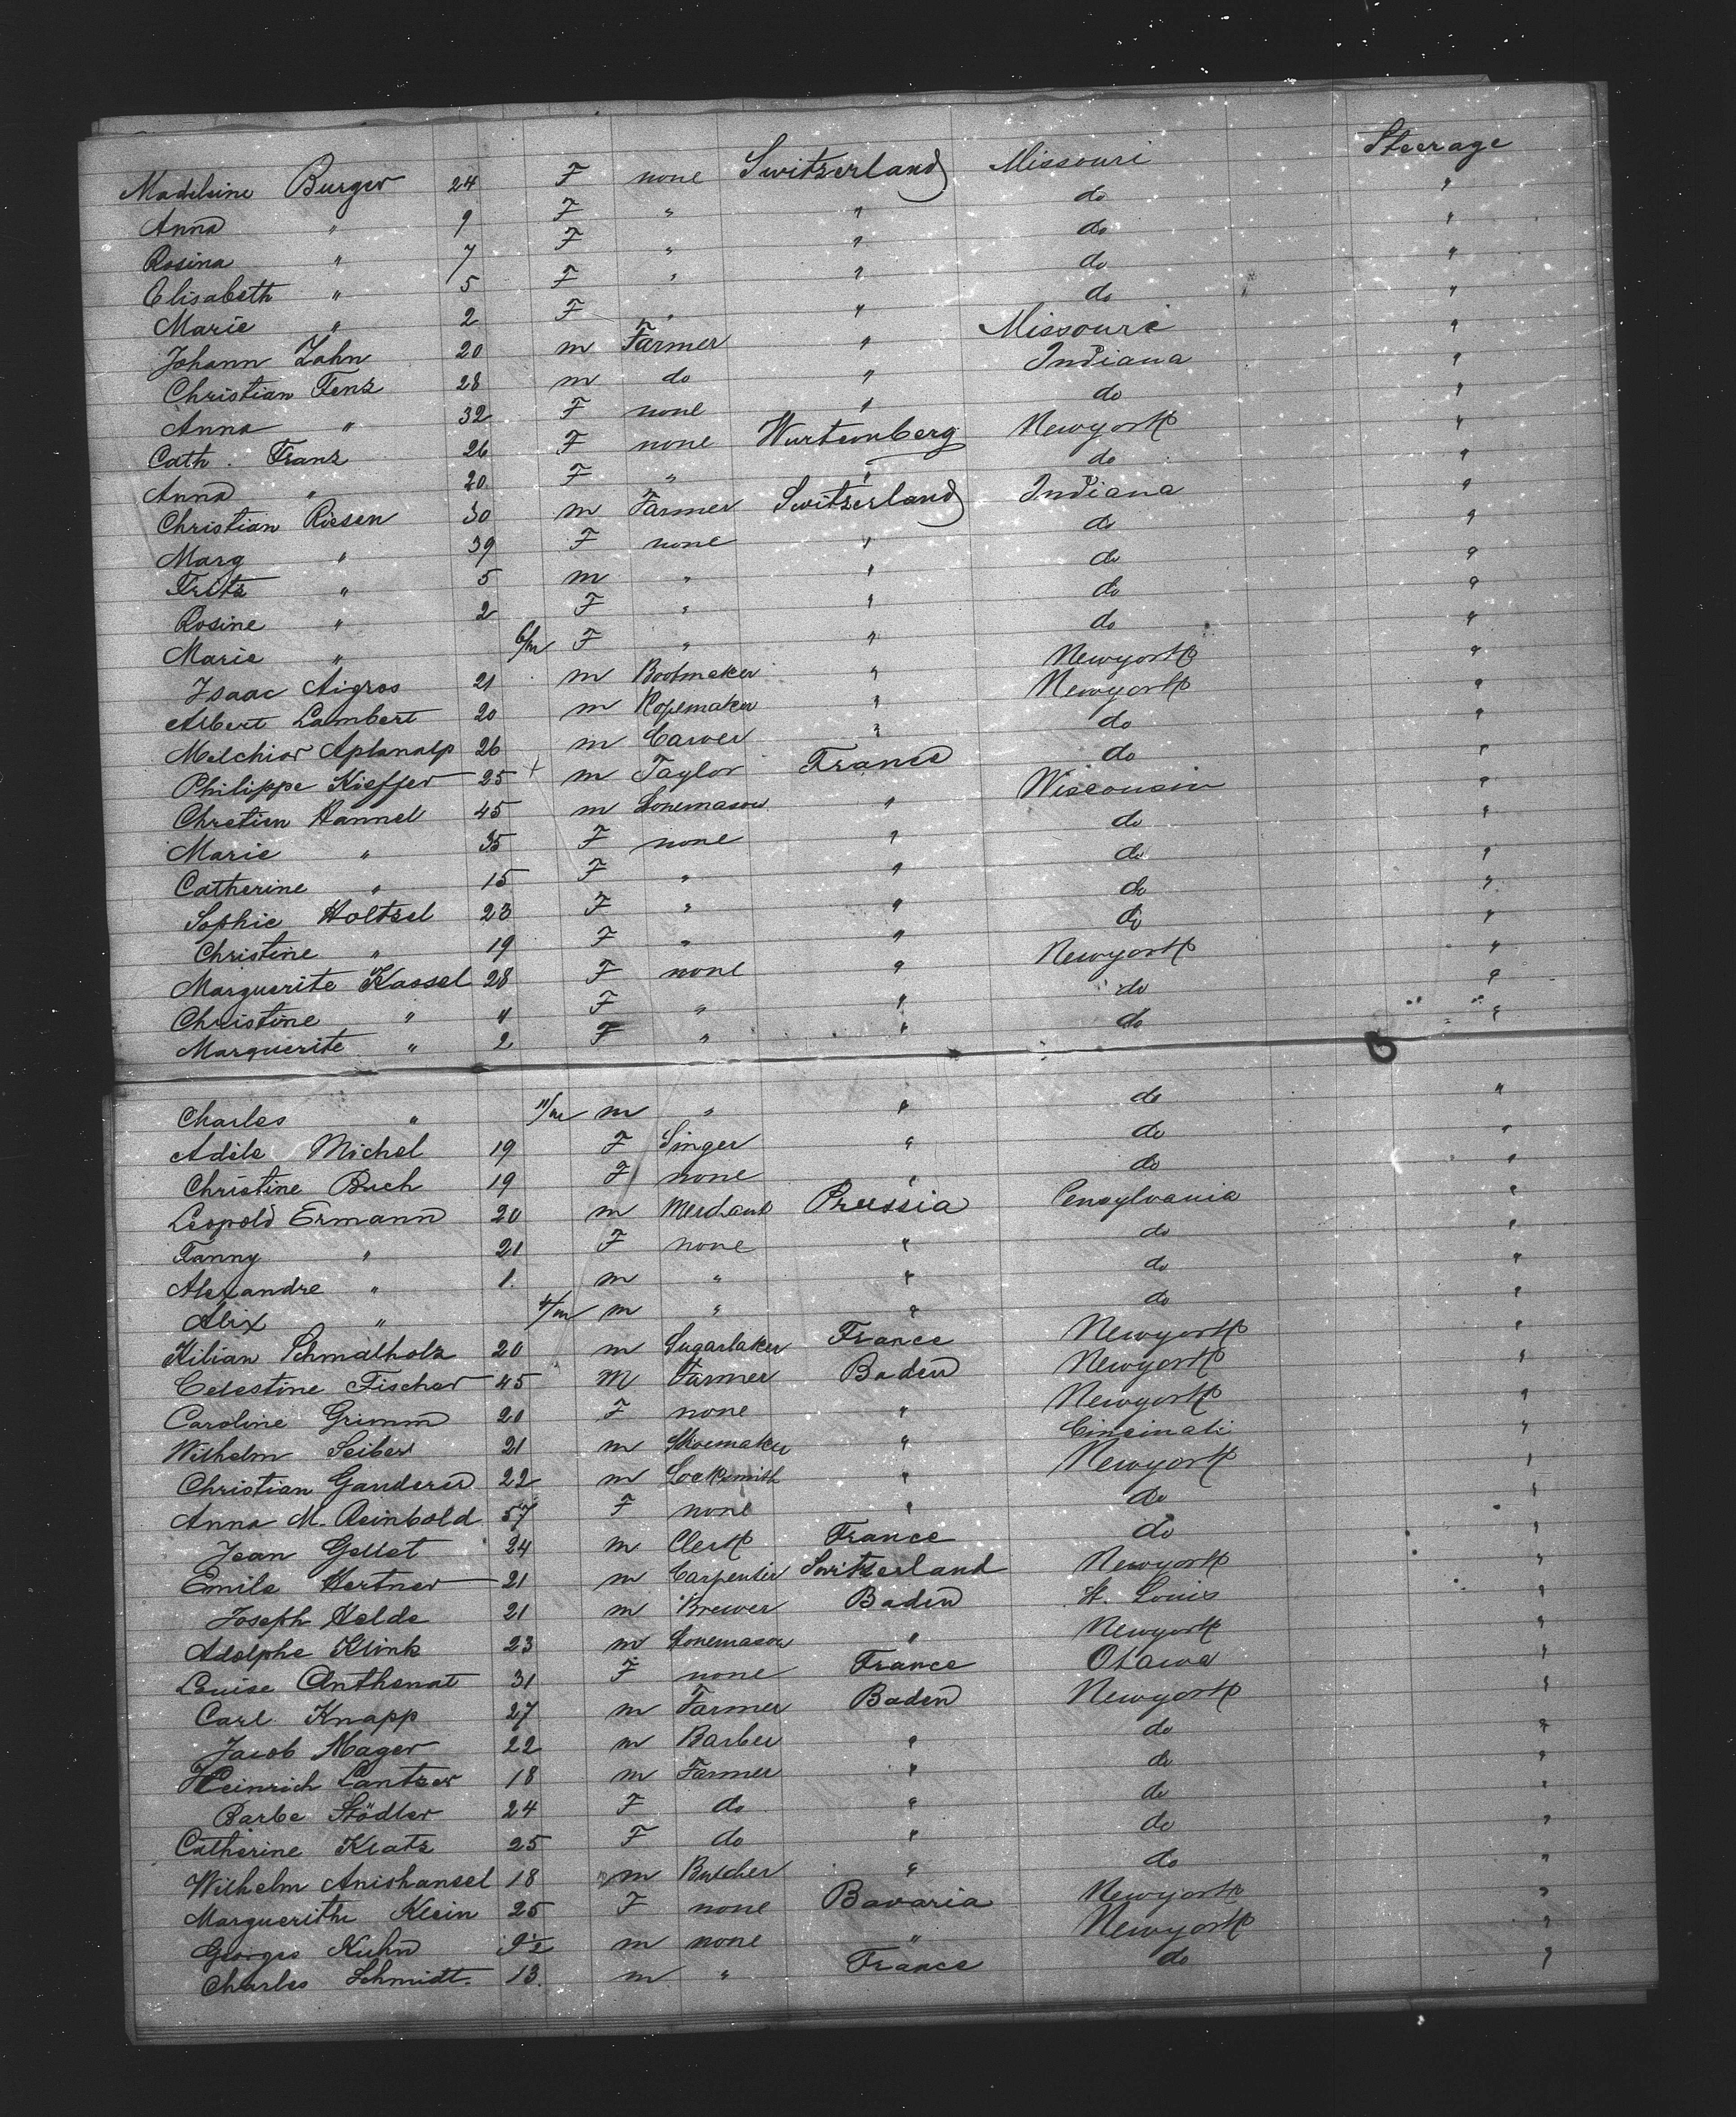 Madeleine Burger 24 F none Switzerland Missouri Steerage
Anna " 9 F " " do "
Rosina " 7 F " " do "
Elisabeth " 5 F " " do "
Marie " 2 F " " do "
Johann Zahn 20 m Farmer " Missouri "
Christian Fenz 28 m do " Indiana "
Anna " 32 F none " do "
Cath. Franz 26 F none Wurtemberg Newyork "
Anna " 20 F " " do "
Christian Riesen 30 m Farmer Switzerland Indiana "
Marg " 39 F none " do "
Fritz " 5 m " " do "
Rosine " 2 F " " do "
Marie " 6/m F " " do "
Isaac Aigros 21 m Bootmaker " Newyork "
Albert Lambert 20 m Ropemaker " Newyork "
Melchior Aplanalp 26 m Carver " do "
Philippe Kieffer 25 + m Taylor France do "
Chretien Hannel 45 m Stonemason " Wisconsin "
Marie " 35 F none " do "
Catherine " 15 F " " do "
Sophie Holtzel 23 F " " do "
Christine " 19 F " " do "
Marguerite Kassel 28 F none " Newyork "
Christine " 4 F " " do "
Marguerite " 2 F " " do "
Charles " 11/m m " " do "
Adele Michel 19 F Singer " do "
Christine Buch 19 F none " do "
Leopold Ermann 20 m Merchant Prussia Pensylvania "
Fanny " 21 F none " do "
Alexandre " 1. m " " do "
Alix " /m m " " do "
Kilian Schmalholz 20 m Sugarbaker France Newyork "
Celestine Fischer 45 M Farmer Baden Newyork "
Caroline Grimm 20 F none " Newyork "
Wilhelm Seiber 21 m Shoemaker " Cincinati "
Christian Ganderer 22 m Locksmith " Newyork "
Anna M. Reinbold 57 F none " do "
Jean Gellet 24 m Clerk France do "
Emile Hertner 21 m Carpenter Switzerland Newyork "
Joseph Helde 21 m Brewer Baden St. Louis "
Adolphe Klink 23 m Stonemason " Newyork "
Louise Anthenat 31 F none France Otawa "
Carl Knapp 27 m Farmer Baden Newyork "
Jacob Mager 22 m Barber " do "
Heinrich Lantzer 18 m Farmer " do "
Barbe Stödler 24 F do " do "
Catherine Kratz 25 F do " do "
Wilhelm Anishansel 18 m Butcher " do "
Marguerithe Klein 25 F none Bavaria Newyork "
Georges Kuhn 9½ m none " Newyork "
Charles Schmidt. 13. m " France do "